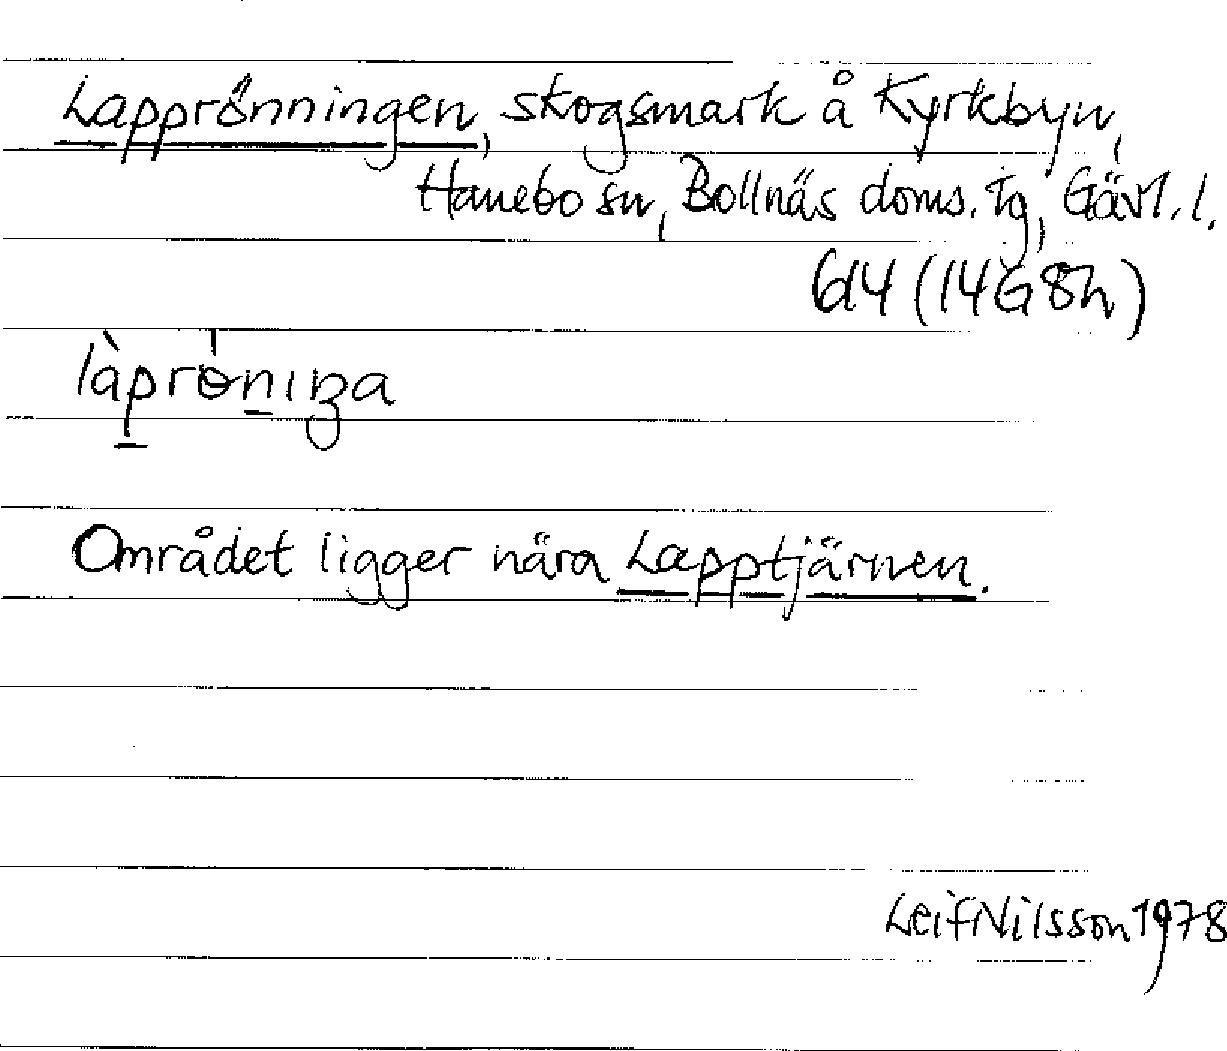 Lapprönningen, skogsmark å Kyrkbyn,
Hanebo sn, Bollnäs doms. tg, Gävl. l.
614 (14G8h)
làprȯnıŋa
Området ligger nära Lapptjärnen.
Leif Nilsson 1978